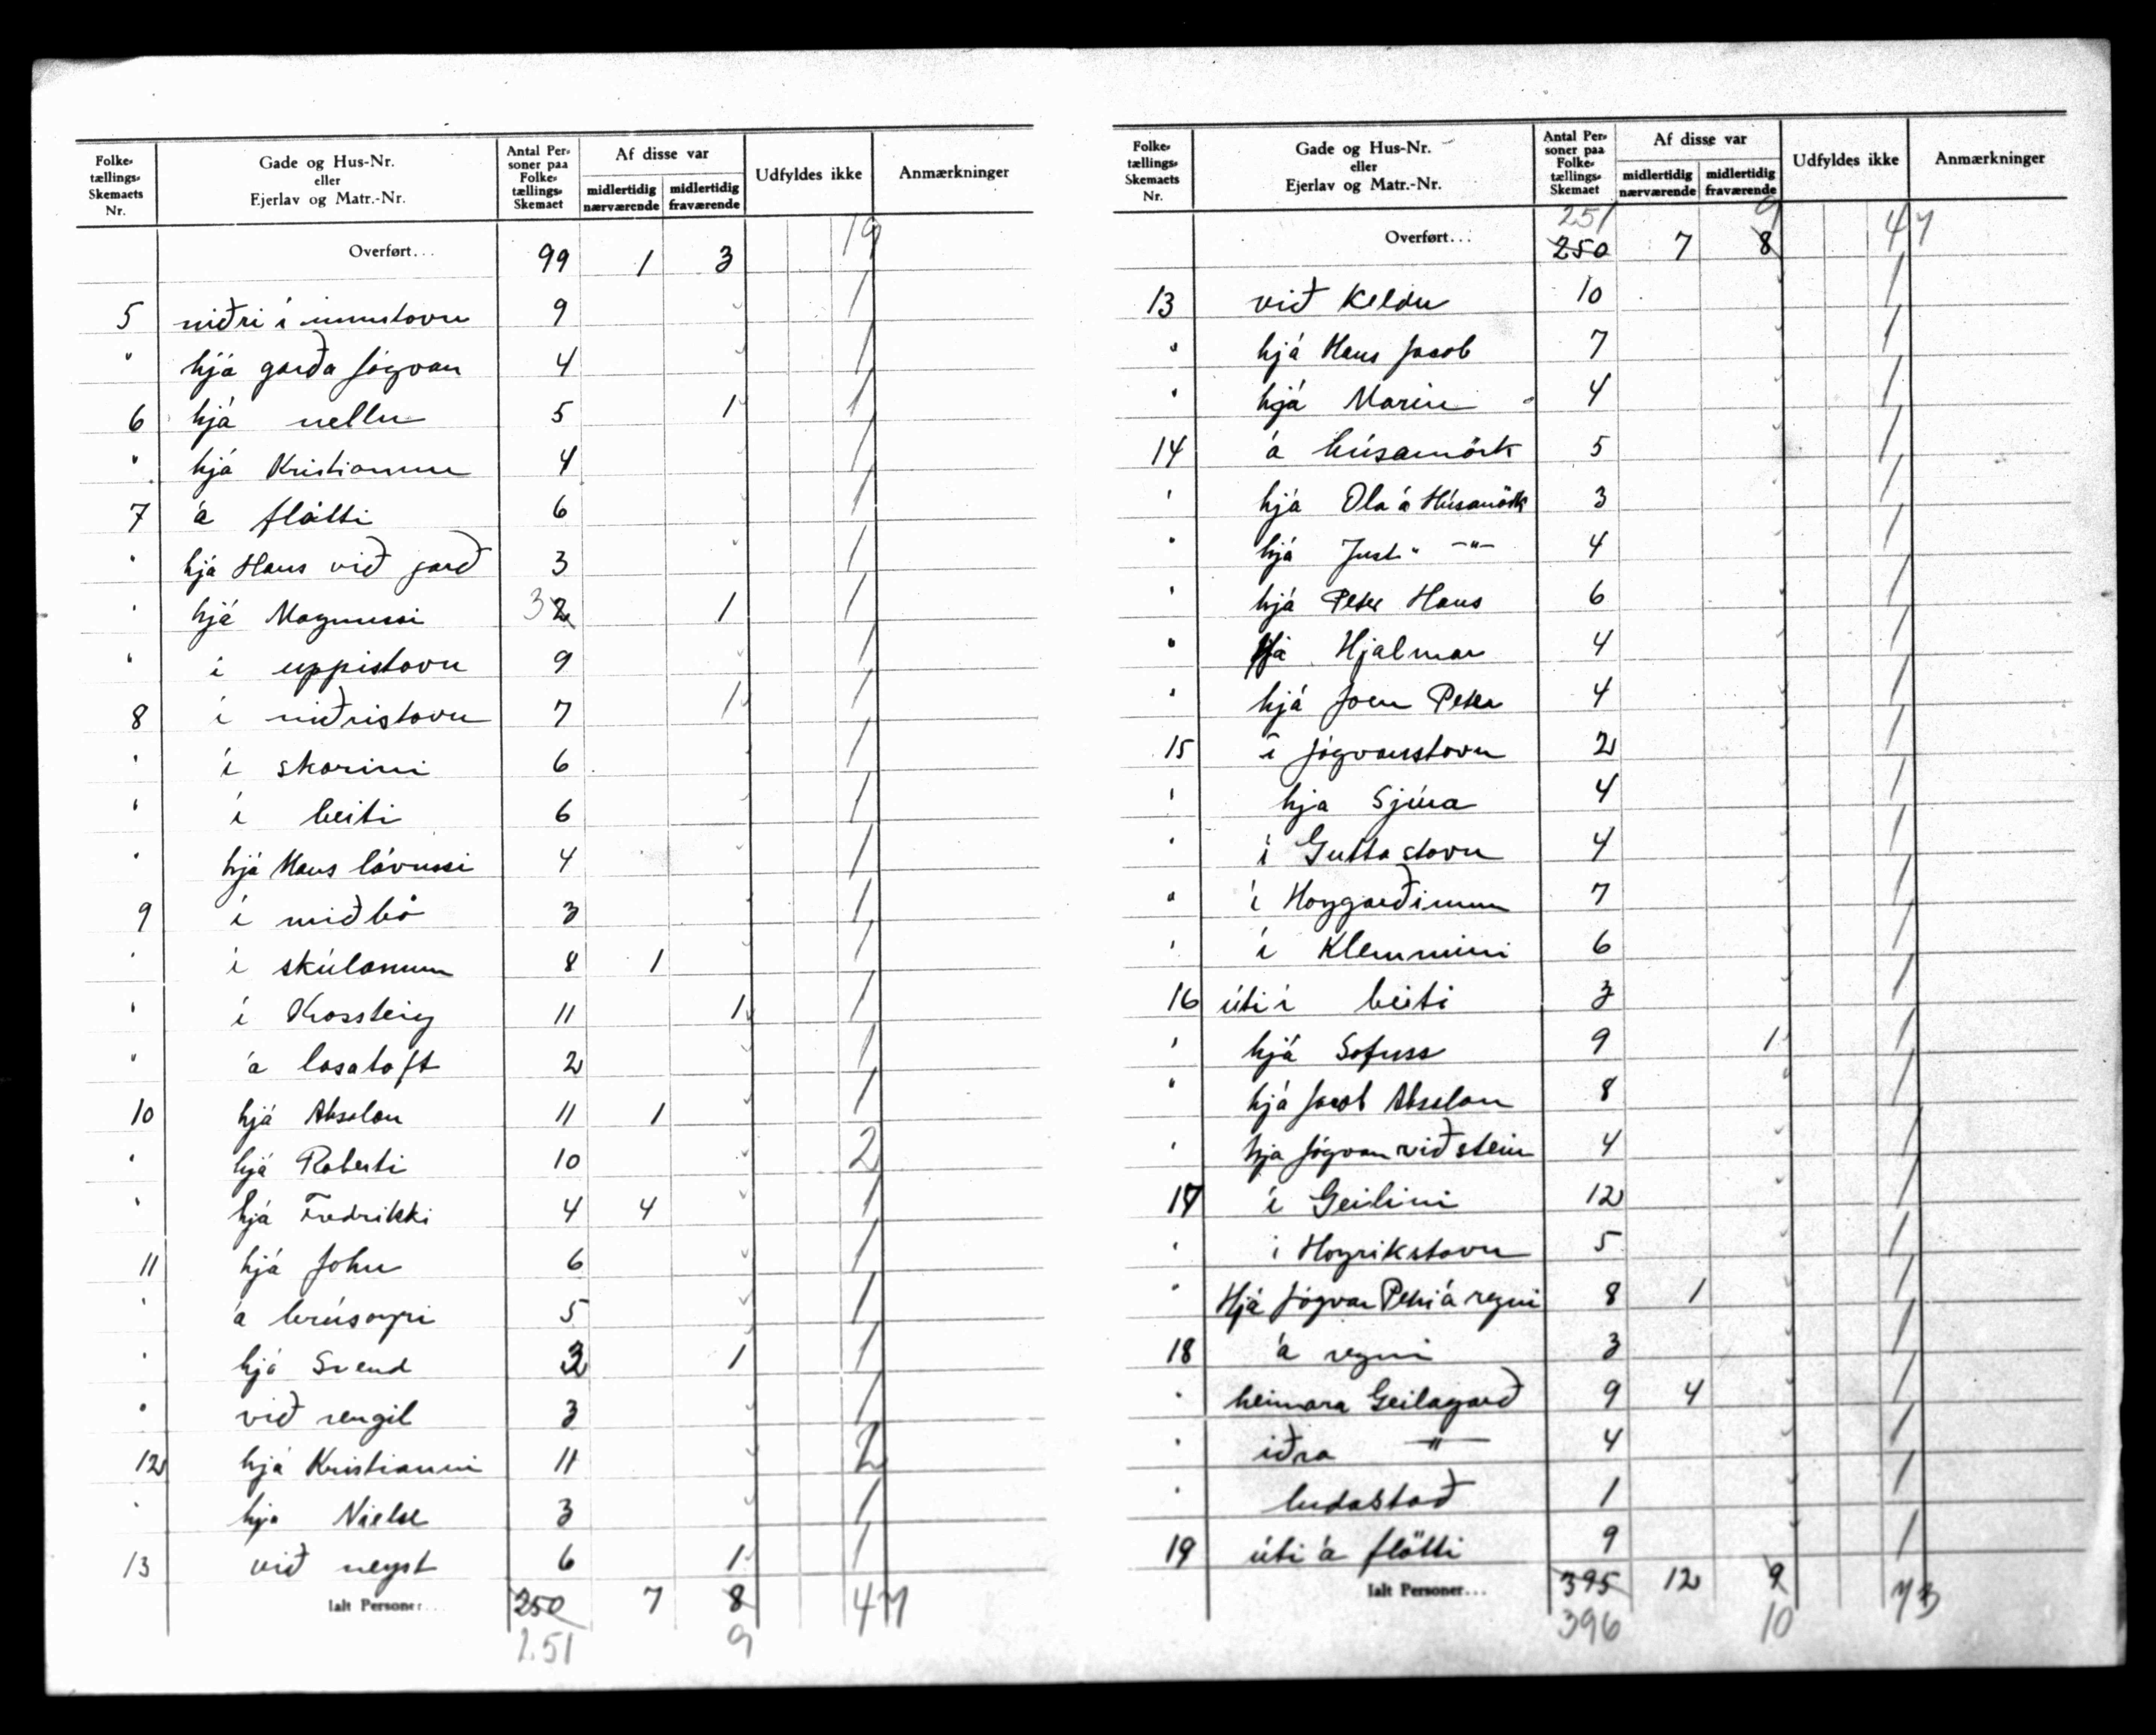 Folke-
tællings-
Skemaets
Nr.
Gade og Hus-Nr.
eller
Ejerlav og Matr.-Nr.
Antal Per-
soner paa
Folke-
tællings-
Skemaet
Af disse var
midlertidig nærværende
midlertidig fraværende
Udfyldes ikke
Anmærkninger
Overført... 99 1 3 19
5 niðri í innustovu 9 1
" hjá garða Jógvan 4 1
6 hjá nellu 5 1 1
" hjá Kristiannu 4 1
7 á flátti 6 1
" hjá Hans við garð 3 1
" hjá Magnussi 3 2 1 1
" í uppistovu 9 1
8 í niðristovu 7 1 1
" í skorini 6 1
" í beiti 6 1
" hjá Hans lávussi 4 1
9 í miðbø 3 1
" í skúlanum 8 1 1
" í Krossteig 11 1 1
" á lasatoft 2 1
10 hjá Absolon 11 1 1
" hjá Roberti 10 2
" hjá Fredrikki 4 4 1
11 hjá John 6 1
" á brúsoyri 5 1
" hjá Svend 3 1 1
" við rengil 3 1
12 hjá Kristianni 11 2
" hja Nielse 3 1
13 við neyst 6 1 1
Ialt Personer... 250 7 8 47
251 9
Folke-
tællings-
Skemaets
Nr.
Gade og Hus-Nr.
eller
Ejerlav og Matr.-Nr.
Antal Per-
soner paa
Folke-
tællings-
Skemaet
Af disse var
midlertidig nærværende
midlertidig fraværende
Udfyldes ikke
Anmærkninger
251 9
Overført... 250 7 8 47
13 við Keldu 10 1
" hjá Hans Jacob 7 1
" hjá Marin 4 1
14 á húsamörk 5 1
" hjá Ola á Húsamörk 3 1
" hjá Just " -"- 4 1
" hjá Peter Hans 6 1
" hjá Hjalmar 4 1
" hjá Joen Peter 4 1
15 í Jógvanstovu 2 1
" hja Sjúra 4 1
" í Guttastovu 4 1
" í Hoygarðinum 7 1
" í Klemmini 6 1
16 úti í beiti 3 1
" hjá Sofuss 9 1 1
" hjá Jacob Abselon 8 1
" hja Jógvan við stein 4 1
17 í Geilini 12 1
" í Hoyrikstovu 5 1
" Hjá Jógvan Petri á regni 8 1 1
18 á regni 3 1
" heimara Geilagarð 9 4 1
" iðra -"- 4 1
" ludastað 1 1
19 úti á flötti 9 1
Ialt Personer... 395 12 9 73
396 10